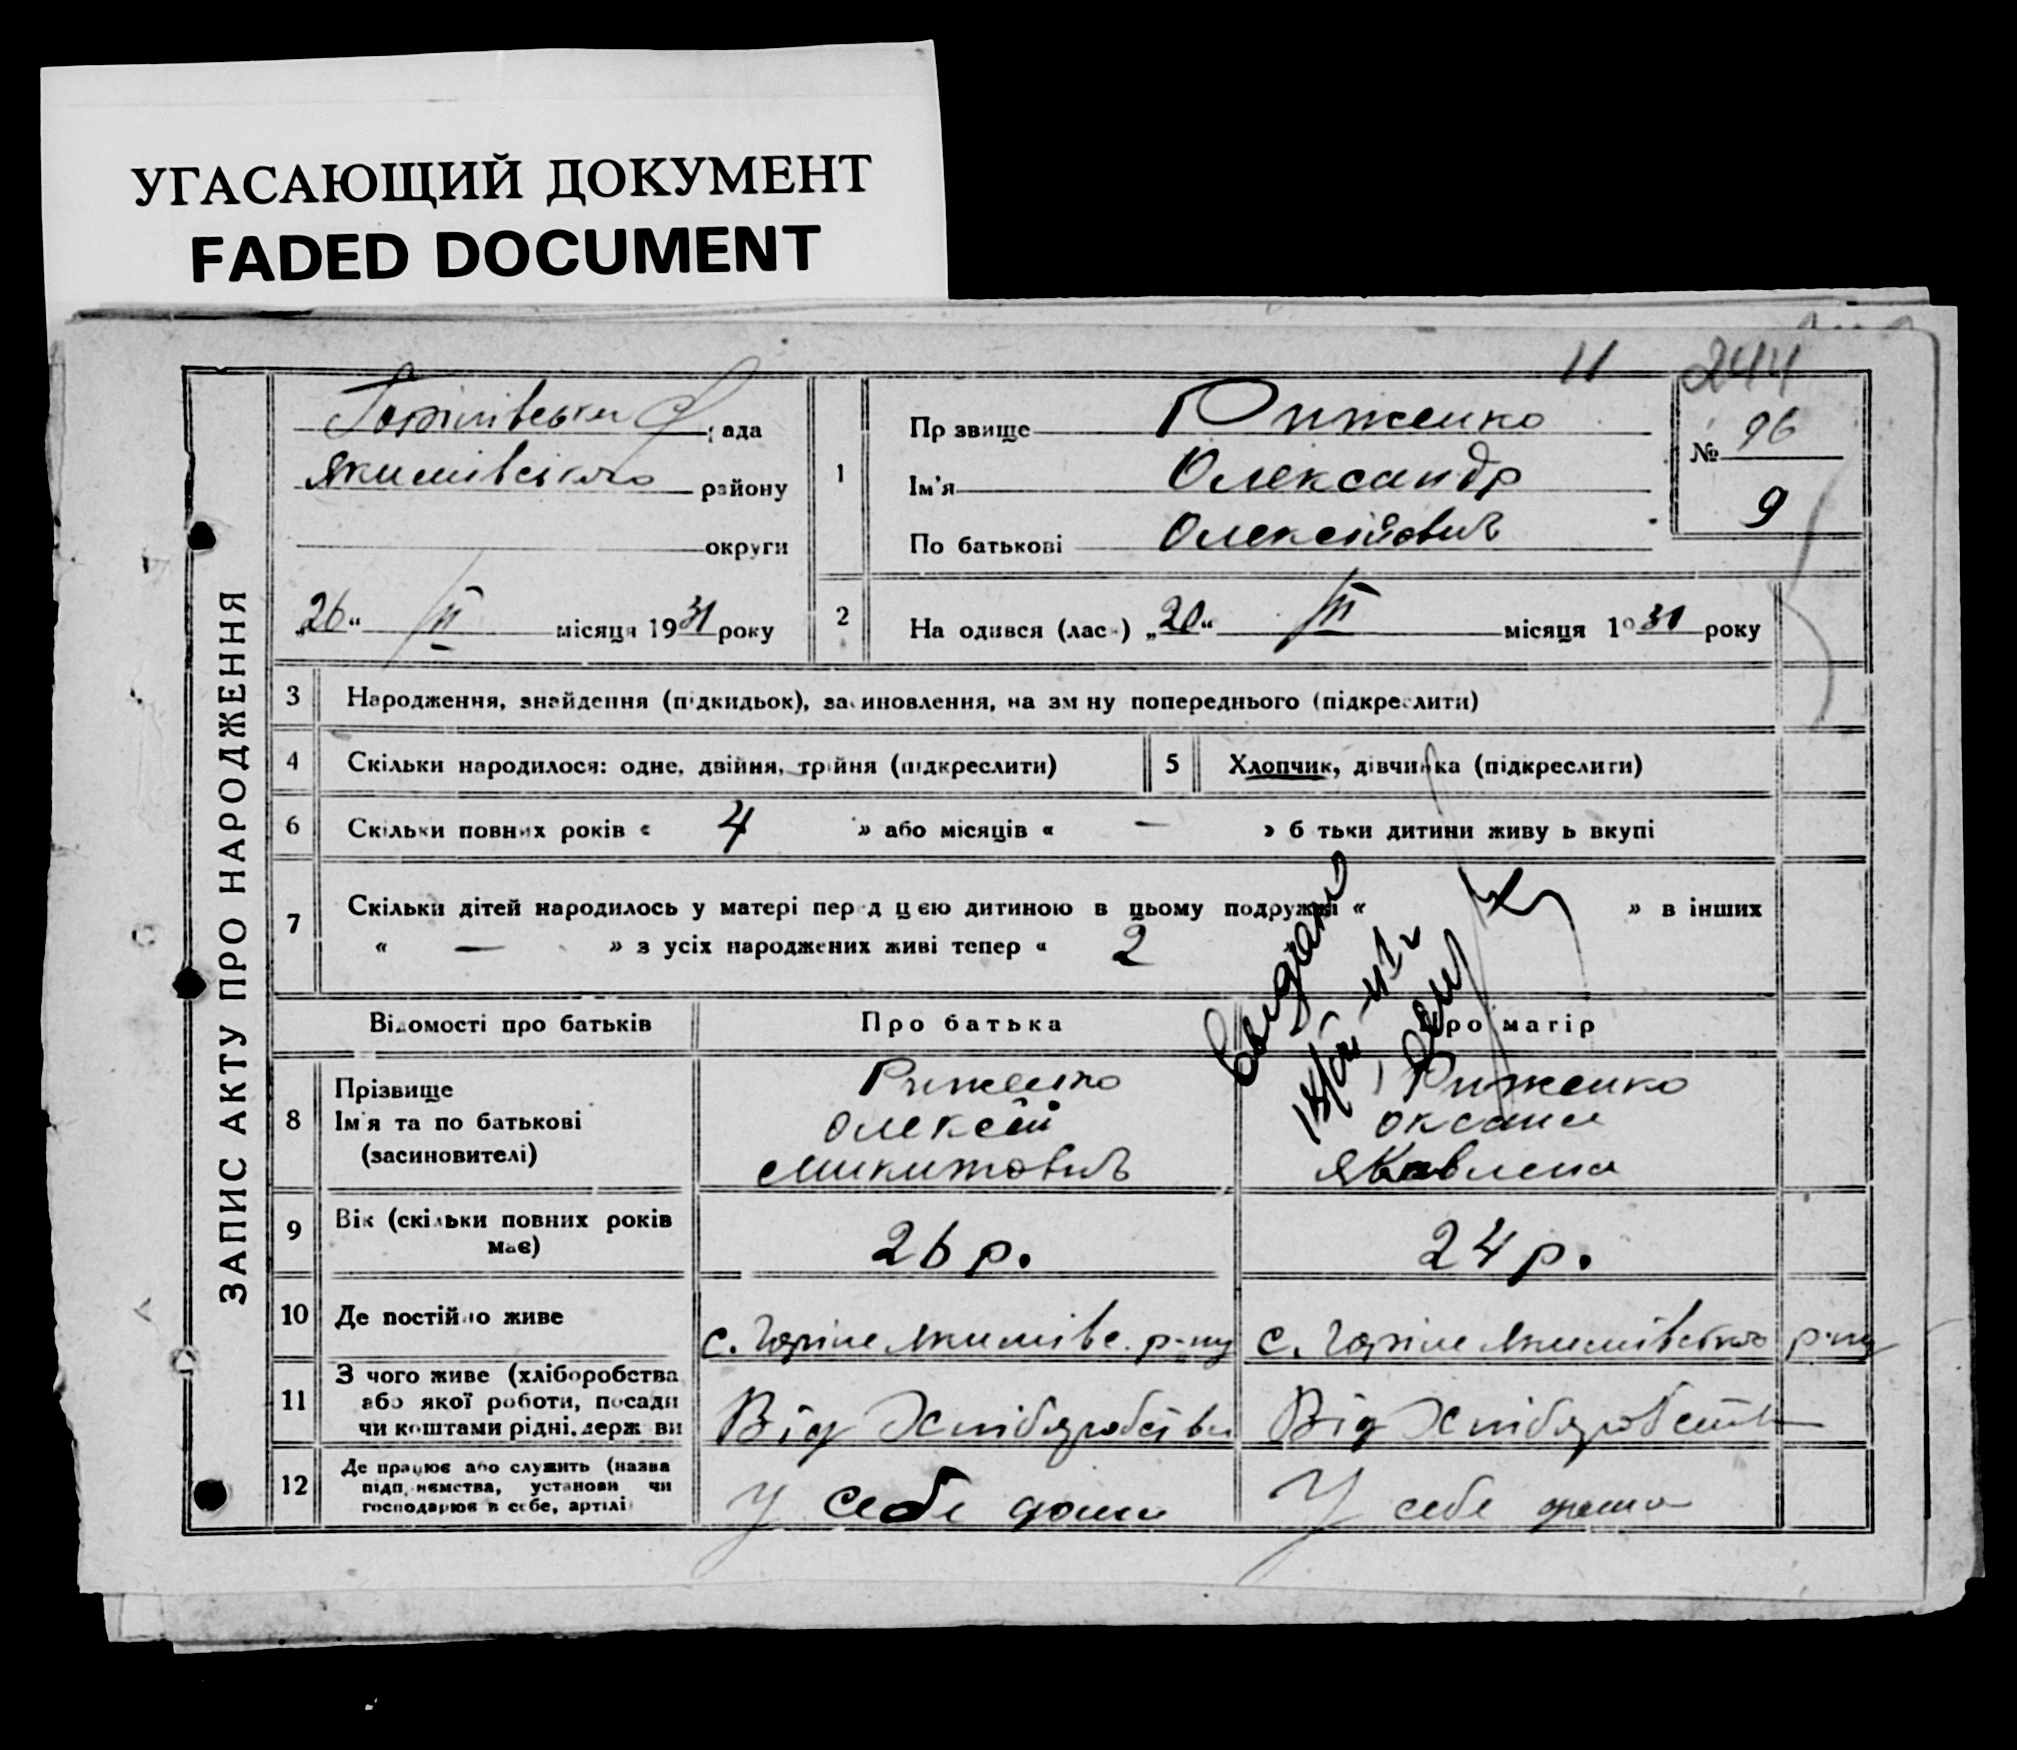 УГАСАЮЩИЙ ДОКУМЕНТ
FADED DOCUMENT
11 244
ЗАПИС АКТУ ПРО НАРОДЖЕННЯ
рада
Якимівського району
округи
„26“ III місяця 1931 року
1
Прізвище Риженко
Ім'я Олександр
По батькові Олексійович
№ 96
9
2 Народився (лась) „20“ III місяця 1931 року
3 Народження, знайдення (підкидьок), засиновлення, на зміну попереднього (підкреслити)
4 Скільки народилося: одне, двійня, трійня (підкреслити)
5 Хлопчик, дівчинка (підкреслити)
6 Скільки повних років « 4 » або місяців « — » батьки дитини живуть вкупі
7 Скільки дітей народилось у матері перед цією дитиною в цьому подружжі « » в інших
« — » з усіх народжених живі тепер « 2
Відомості про батьків Про батька Про матір
8 Прізвище
Ім'я та по батькові
(засиновителі)
Риженко
Олексій
Микитович
Риженко
Оксана
Яковлена
9 Вік (скільки повних років
має)
26 р. 24 р.
10 Де постійно живе
с. Горіле Якимівс. р-ну с. Горіле Якимівського р-ну
11 З чого живе (хліборобства
або якої роботи, посади
чи коштами рідні, держави
Від Хліборобства Від Хліборобства
12 Де працює або служить (назва
підприємства, установи чи
господарює в себе, артілі
У себе дома У себе дома